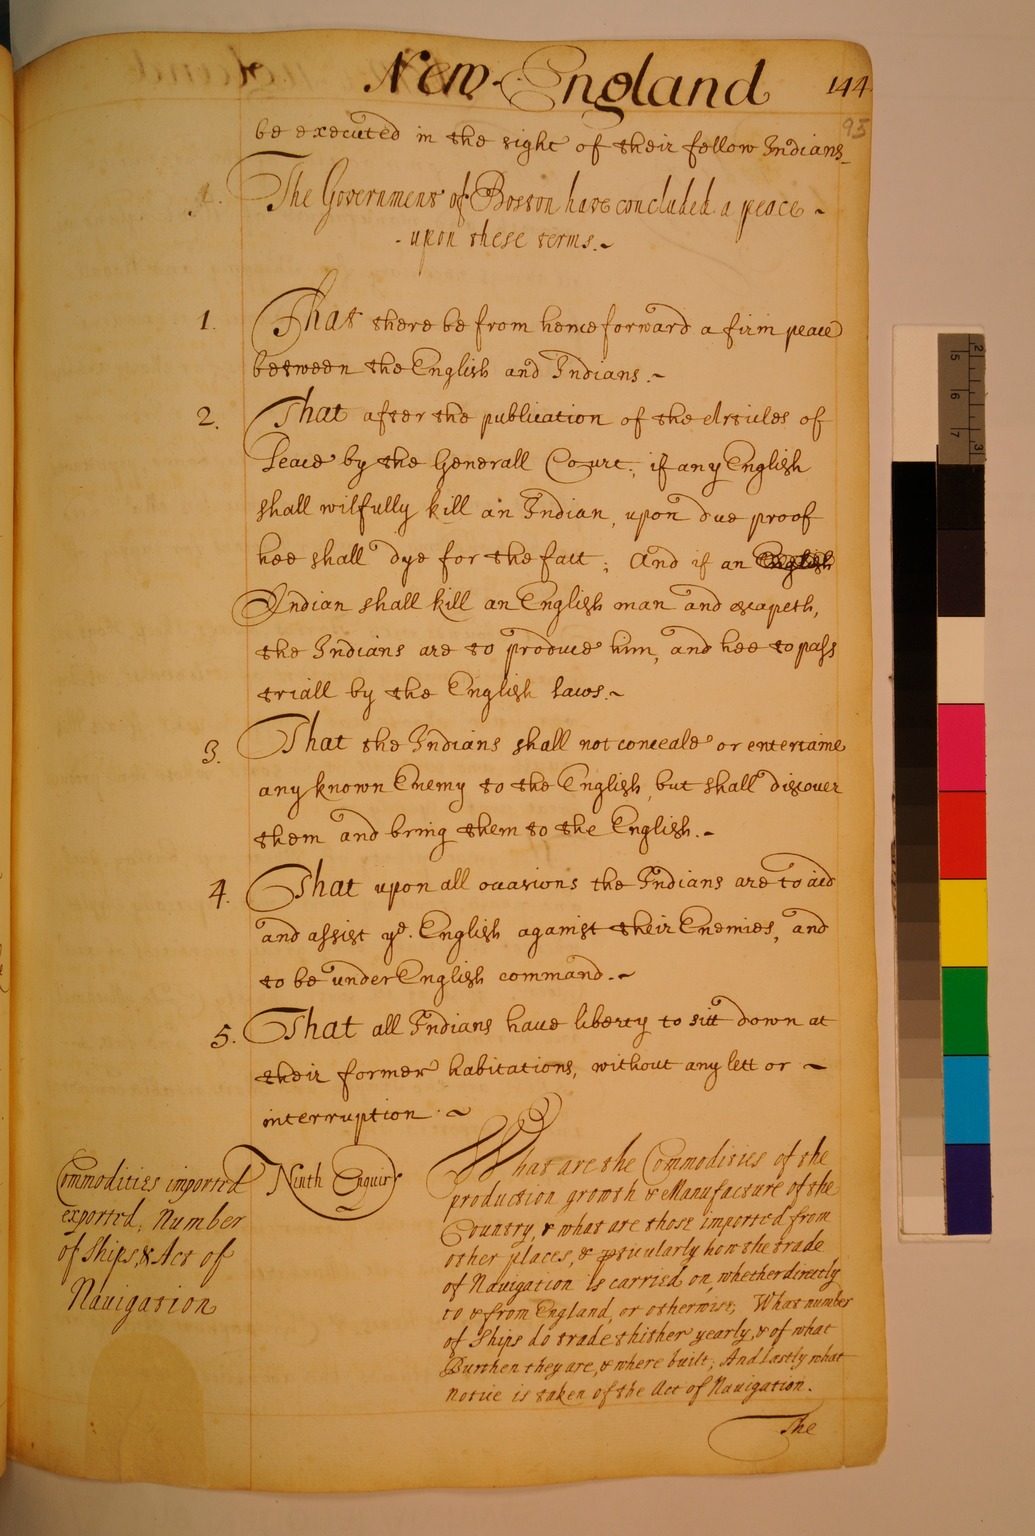 New-England
144
95
be executed in the sight of their fellow Indians_
The Government of Boston have concluded a peace ~
- upon these terms.~
1. That there be from henceforward a firm peace
between the English and Indians.~
2. That after the publication of the Articles of
Peace by the Generall Court; if any English
shall wilfully kill an Indian, upon due proof
hee shall dye for the fact; And if an English
Indian shall kill an English man and escapeth,
the Indians are to produce him, and hee to pass
triall by the English laws.~
3. That the Indians shall not conceale or entertaine
any known Enemy to the English, but shall discover
them and bring them to the English.~
4. That upon all occasions the Indians are to aid
and assist ye. English against their Enemies, and
to be under English command.~
5. That all Indians have liberty to sitt down at
their former habitations, without any lett or ~
interruption. ~
Commodities imported
exported, Number
of Ships, & Act of
Navigation
Ninth Enquiry
What are the Commodities of the
production growth & Manufacture of the
Country, & what are those imported from
other places, & pticularly how the trade
of Navigation is carried on, whether directly
to & from England, or otherwise; What number
of Ships do trade thither yearly, & of what
Burthen they are, & where built; And lastly what
notice is taken of the Act of Navigation.
The